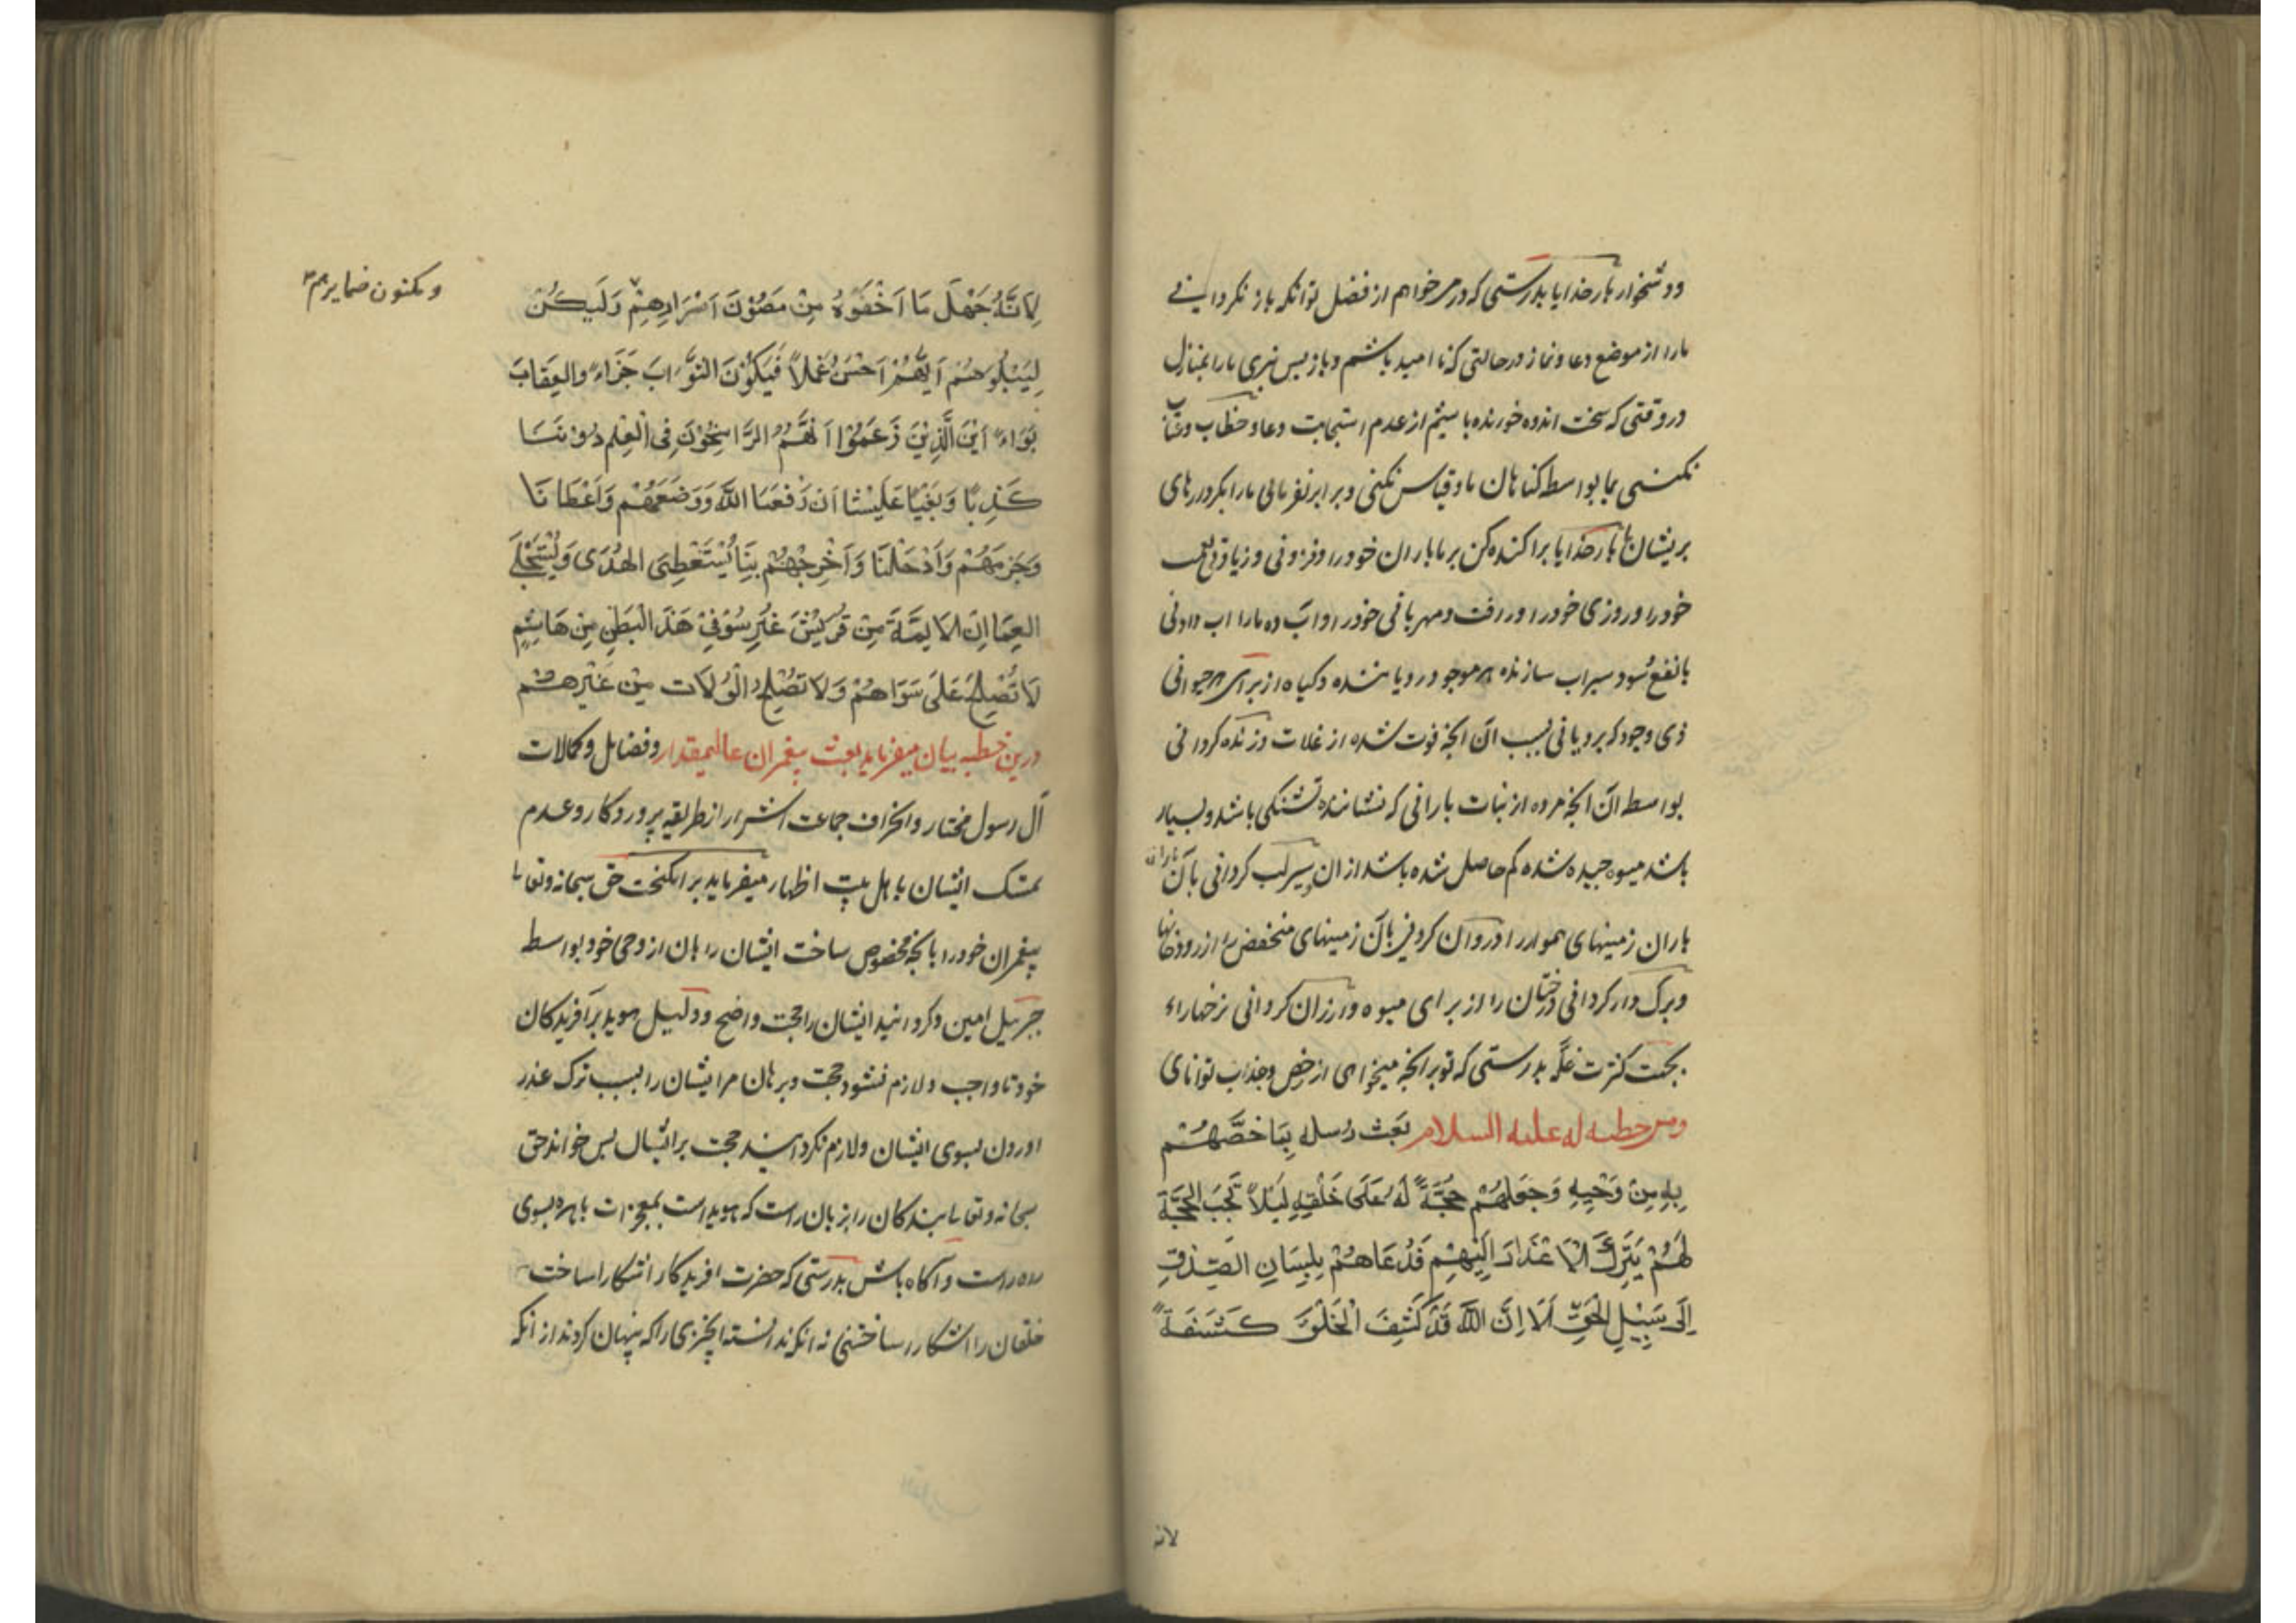 ودشخوار بارخدایا بدرستی که در میخواهم از فضل تو انکه باز نکردانی
مارا از موضع دعا و نماز در حالتی که نا امید باشم و باز پس نبری مارا بمنازل
در وقتی که سخت اندوه خورنده باشیم از عدم استجابت دعا و خطاب وعتاب
نکنی بما بواسط کناهان ما و قیاس نکنی و برابر نفرمائی مارا بکردارهای
بریشان ما بارخدایا براکنده کن بر ما باران خود را وفزونی و زیادتی
خود را و روزی خود را و رافت و مهربانی خود را و اب ده مارا اب دادنی
با نفع سود سیراب سازنده هر موجود رویا ننده کیاه از برای هر حیوانی
ذی وجود که برویانی بسبب ان انچه فوت شده از غلات و زنده کردانی
بواسط ان انچه مرده از نبات بارانی که نشاننده تشنکی باشد و بسیار
باشد میوه چیده شده کم حاصل شده باشد از ان سیراب کردانی بآن باران
باران زمینهای هموار را و روان کردنی بآن زمینهای منخفض از رودخانها
وبرک دار کردانی درختان را از برای میوه و ارزان کردانی نرخها را
بجهت کثرت غله بدرستی که تو بر انچه میخواهی از خص و جذاب توانای
ومن خطبه له علیه السلام بَعَثَ رُسله بِمَا خَصَّهُمْ
بِهِ مِنْ وَحْیِهِ وَجَعَلَهُمْ حُجَّةً لَهُ عَلَی خَلْقِهِ لِئَلاّ تَجَبَ الْحُجَّة
لَهُمْ بِتَرْكَ الْاعْذَارَ اِلَیْهِمْ فَدُعَاهُمْ بِلِسَانِ الصِّدْقِ
اِلَی سَبِیْلِ الْحَقِّ اَلَا اِنَّ اللّٰه قَدْ كَشَفَ الْخَلْقَ كَشَفَةً
لانه
لِاَنَّهُ جَهْلَ مَا اَخْفَوهُ مِنْ مَصُوْنَ اَسْرَارِهِمْ وَلَیکُنْ
ومکنون ضمایرهم
لِیَبْلُوَهُمْ اَیُّهُمْ اَحْسَنُ عَمَلاً فَیَكُوْنَ الثَّوابَ جَزَاءً والعِقَابَ
بَوَاءً اَیْنَ الَّذِیْنَ زَعَمُوْا اَنَّهُمُ الرَّاسِخُوْنَ فِی الْعِلْم دُوْنَنَا
كَذِبًا وَبَغْیًا عَلَیْنَا اَنْ رَفَعَنَا اللّٰه وَوَضَعَهُمْ وَاَعْطَانَا
وَحَرَمَهُمْ وَاَدْخَلَنَا وَاَخْرِجَهُمْ بِنَا یُسْتَعْطِی الْهُدَی وَیُسْتَجْلَی
العِمَا اِنَ الایِمَّةَ مِنْ قُرَیْشَ غُرِسُوْ فِیْ هَذَ الْبَطْنِ مِنْ هَاشِمٍ
لَا تُصْلِحْ عَلَی سَوَاهُمْ وَلَا تَصْلِحُ الْوُلَات مِنْ غَیْرِهِمْ
درین خطبه بیان میفرماید بعث پیغمران عالیمقدار و فضایل وکمالات
آل رسول مختار وانحراف جماعت اشرار از طریقه پروردکار وعدم
تمسک ایشان باهل بیت اظهار میفرماید برانکیخت حق سبحانه وتعالی
پیغمران خود را بانچه مخصوص ساخت ایشان را بان از وحی خود بواسط
جبرئیل امین وکردانید ایشان را حجت واضح ودلیل هویدا بر آفریدکان
خود تا واجب ولازم نشود حجت وبرهان مر ایشان را بسبب ترک عذر
اوردن بسوی ایشان ولازم نکردانید حجت بر ایشان پس خواند حق
سبحانه وتعالی بندکان را بزبان راست که هویداست بمعجزات باهره بسوی
راه راست وآکاه باش بدرستی که حضرت افریدکار اشکارا ساخت
خلقان را اشکارا ساختنی نه انکه ندانسته انچیزی را که پنهان کردند از انکه